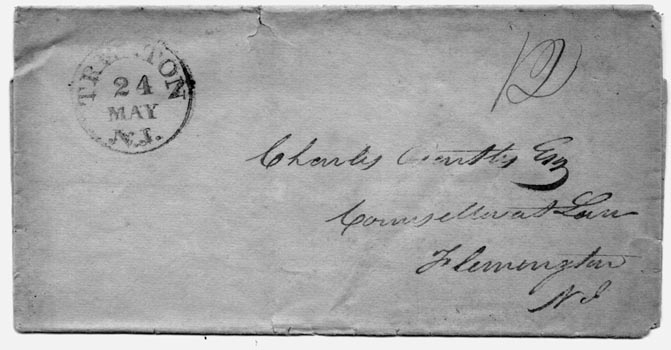 TRENTON
24
MAY
N.J.
12
Charles Bartles Esq
Counsellor at Law
Flemington
NJ